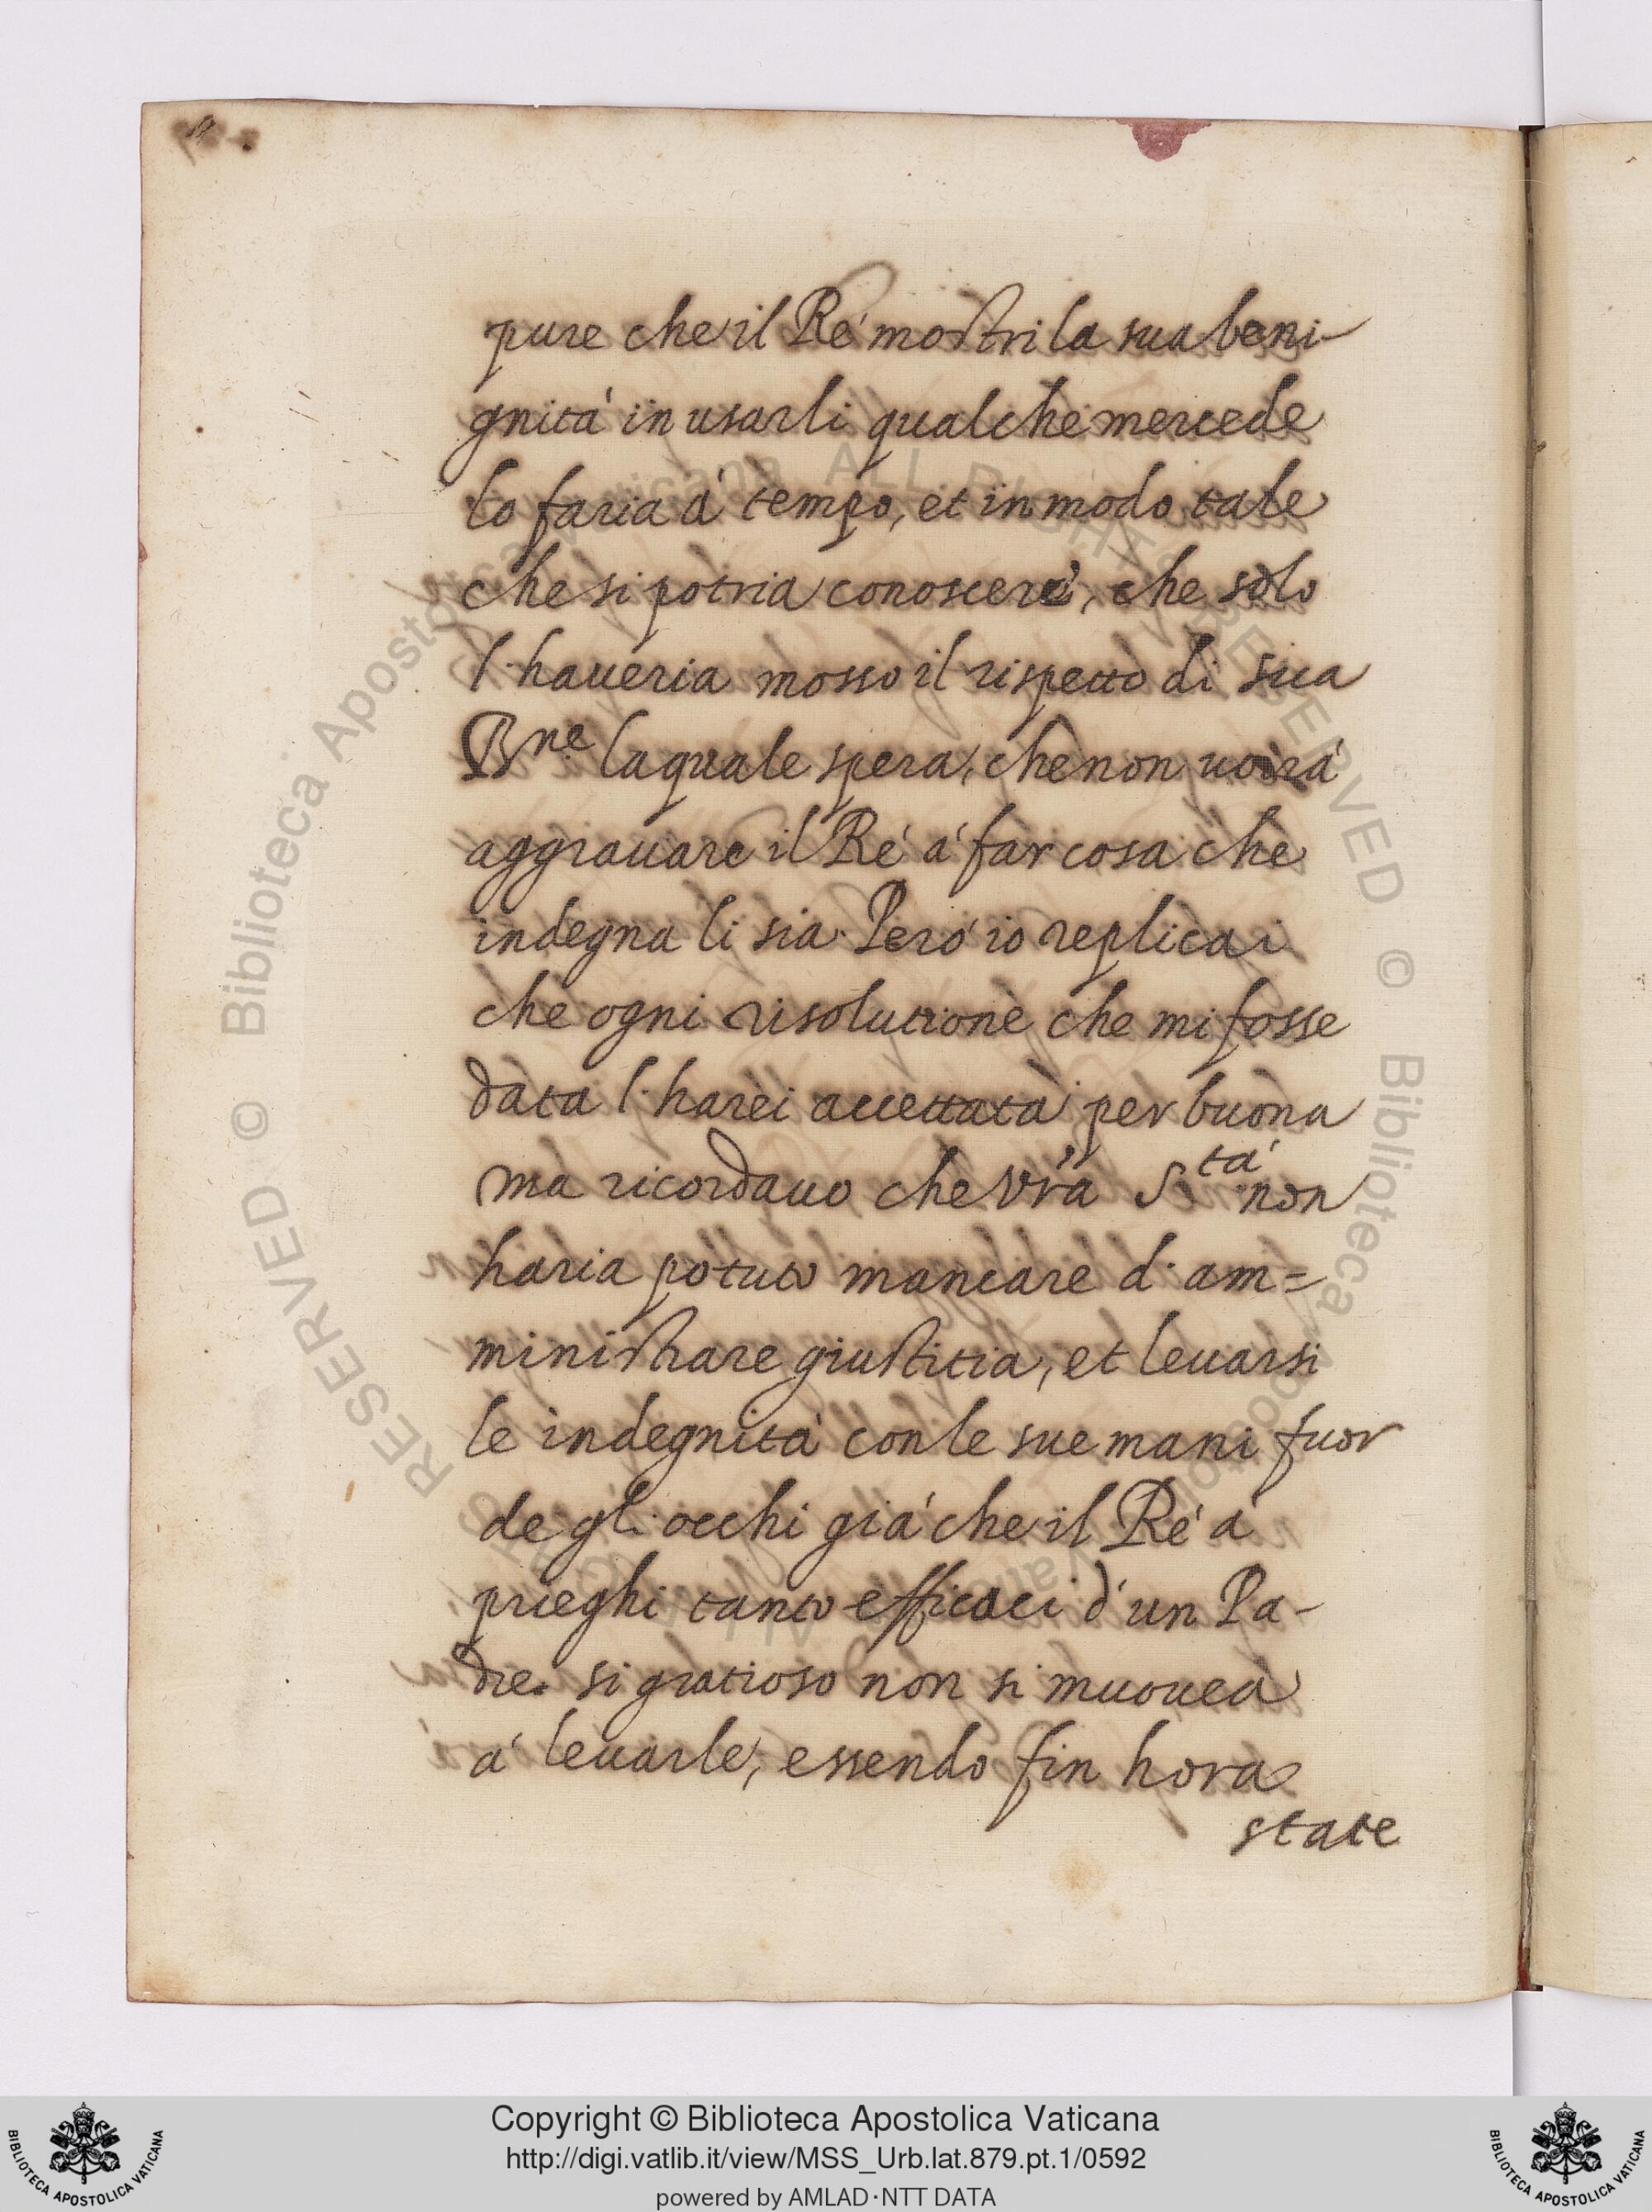 pure che il Ré mostri la sua beni-
gnitá in usarli qualche mercede
lo faria á tempo, et in modo tale
che si potria conoscere, che solo
l'haueria mosso il rispetto di sua
Bne laquale spera, che non uorrá
aggrauare il Ré á far cosa che
indegna li sia. Peró io replicai
che ogni risolutione che mi fosse
data l'harei accettata per buona
ma ricordauo che vra Stá non
haria potuto mancare d'am=
ministrare giustitia, et leuarsi
le indegnitá con le sue mani fuor
de gli occhi giá che il Ré á
prieghi tanto efficaci d'un Pa-
dre si gratioso non si mouea
á leuarle, essendo fin hora
state
© Biblioteca Apostolica Vaticana ALL RIGHTS RESERVED © Biblioteca Apostolica Vaticana ALL RIGHTS RESERVED
Copyright © Biblioteca Apostolica Vaticana
http://digi.vatlib.it/view/MSS_Urb.lat.879.pt.1/0592
powered by AMLAD·NTT DATA
BIBLIOTECA APOSTOLICA VATICANA
BIBLIOTECA APOSTOLICA VATICANA